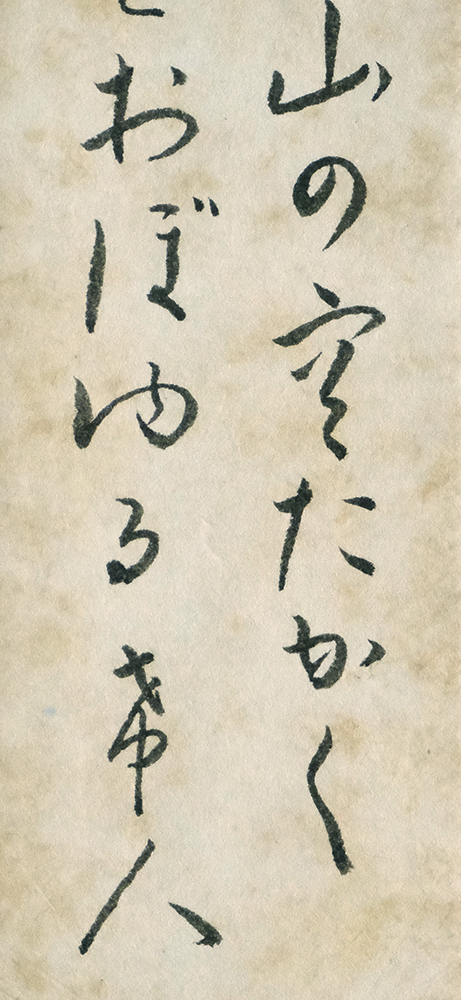 山の空たかく
おぼゆる希人